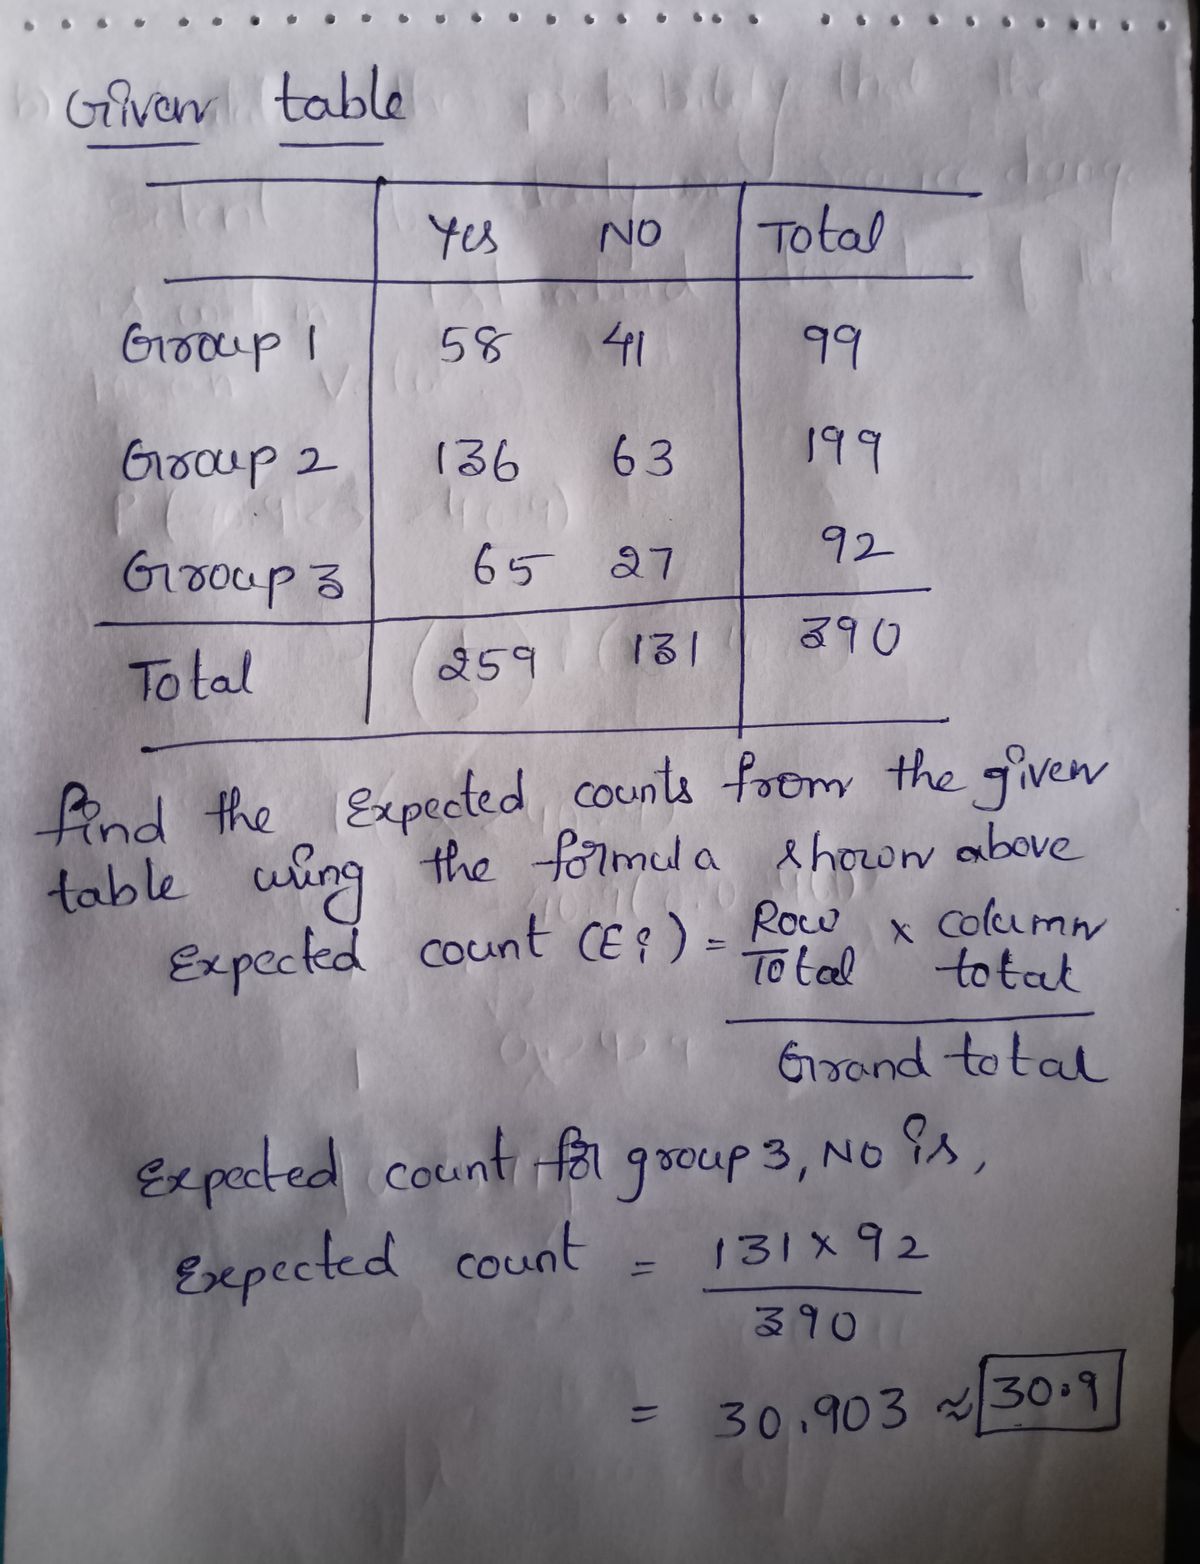 Given table
Yes NO Total
Group 1 58 41 99
Group 2 136 63 199
Group 3 65 27 92
Total 259 131 390
find the Expected counts from the given
table using the formula shown above
Expected count (Ei) = Row Total × column total
Grand total
Expected count for group 3, NO is,
Expected count = 131 × 92
390
= 30.903 ≈ 30.9